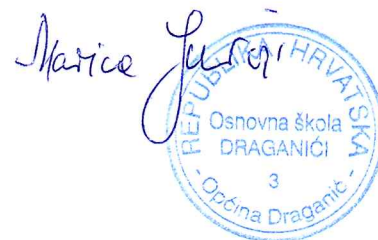 Marica
REPUBLIKA HRVATSKA
Osnovna škola
DRAGANIĆI
3
- Općina Draganić -